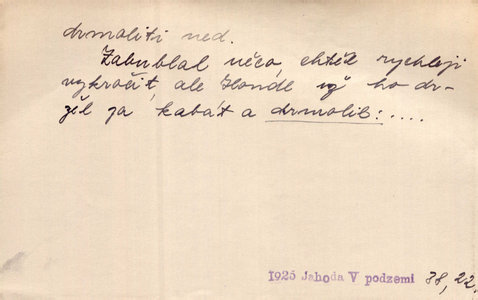 drmoliti ned.
Zabublal něco, chtěl rychleji
vykročit, ale Hondl už ho dr-
žel za kabát a drmolil: ....
1925 Jahoda V podzemí 38, 22.